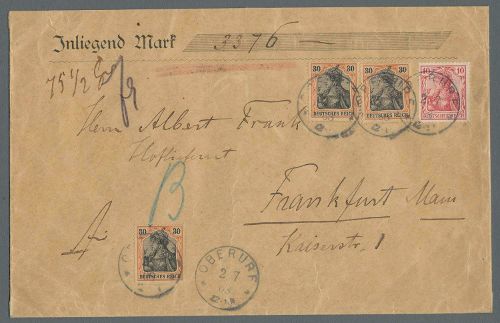 Inliegend Mark 3376 —
75 1/2
30 30 10
DEUTSCHES REICH DEUTSCHES REICH DEUTSCHES REICH
Herrn Albert Frank
Hoflieferant
B
Frankfurt Main
Kaiserstr. 1
30
DEUTSCHES REICH
OBERURF
2 7